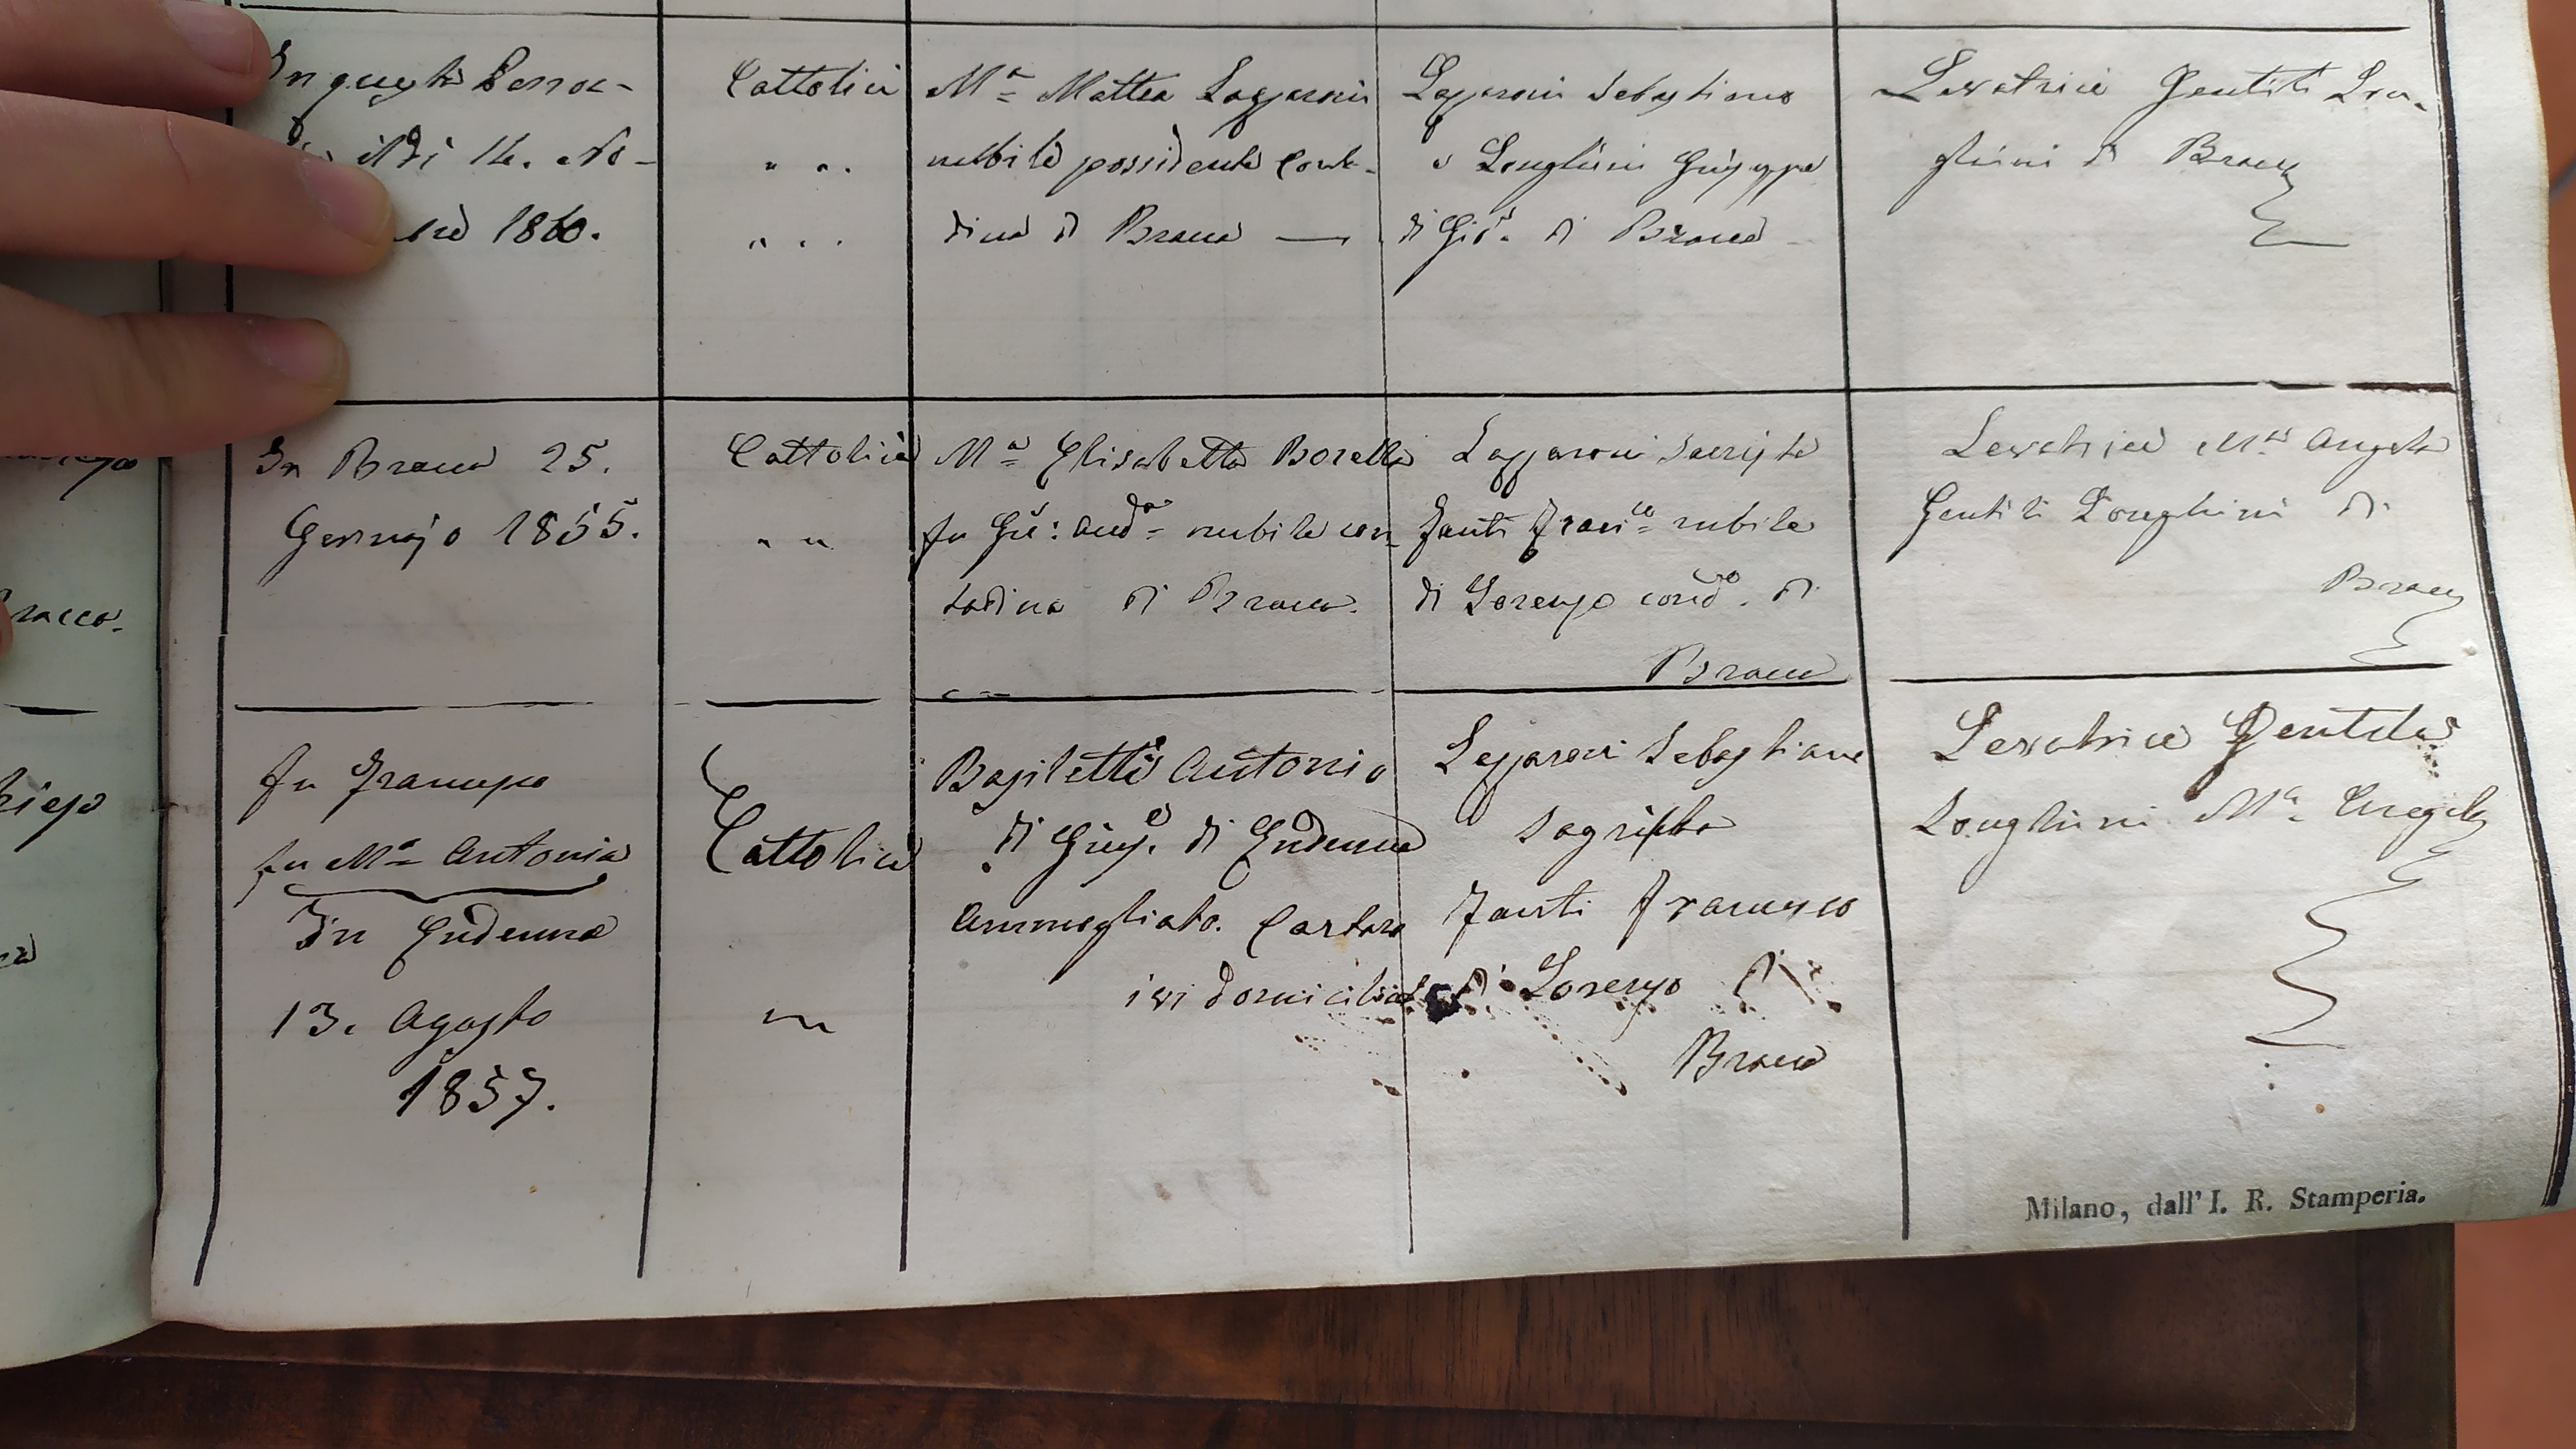 In questa Parroc-
il dì 14. No-
1860.
Cattolici
" " .
" . .
Mª Mattea Lazzaroni
nubile possidente Conta-
dina di Bracca —
Lazzaroni Sebastiano
e Longhini Giuseppe
di Gio. di Bracca
Levatrice Gentili Lon-
ghini di Bracca
In Bracca 25.
Gennajo 1855.
Cattolici
" "
Mª Elisabetta Borelli
fu Gio: nubile con
tadina di Bracca.
Lazzaroni Sacrista
Zanti Franco nubile
di Lorenzo contd. di
Bracca
Levatrice Mª Angela
Gentili Longhini di
Bracca
riego
racco.
fu Francesco
fu Mª Antonia
In Endenna
13. Agosto
1857.
Cattolici
"
Basiletti Antonio
di Giuse. di Endenna
Ammogliato. Cartaro
ivi domiciliato
Lazzaroni Sebastiano
Sagrista
Zanti Francesco
di Lorenzo di
Bracca
Levatrice Gentili
Longhini Mª Angela
Milano, dall' I. R. Stamperia.